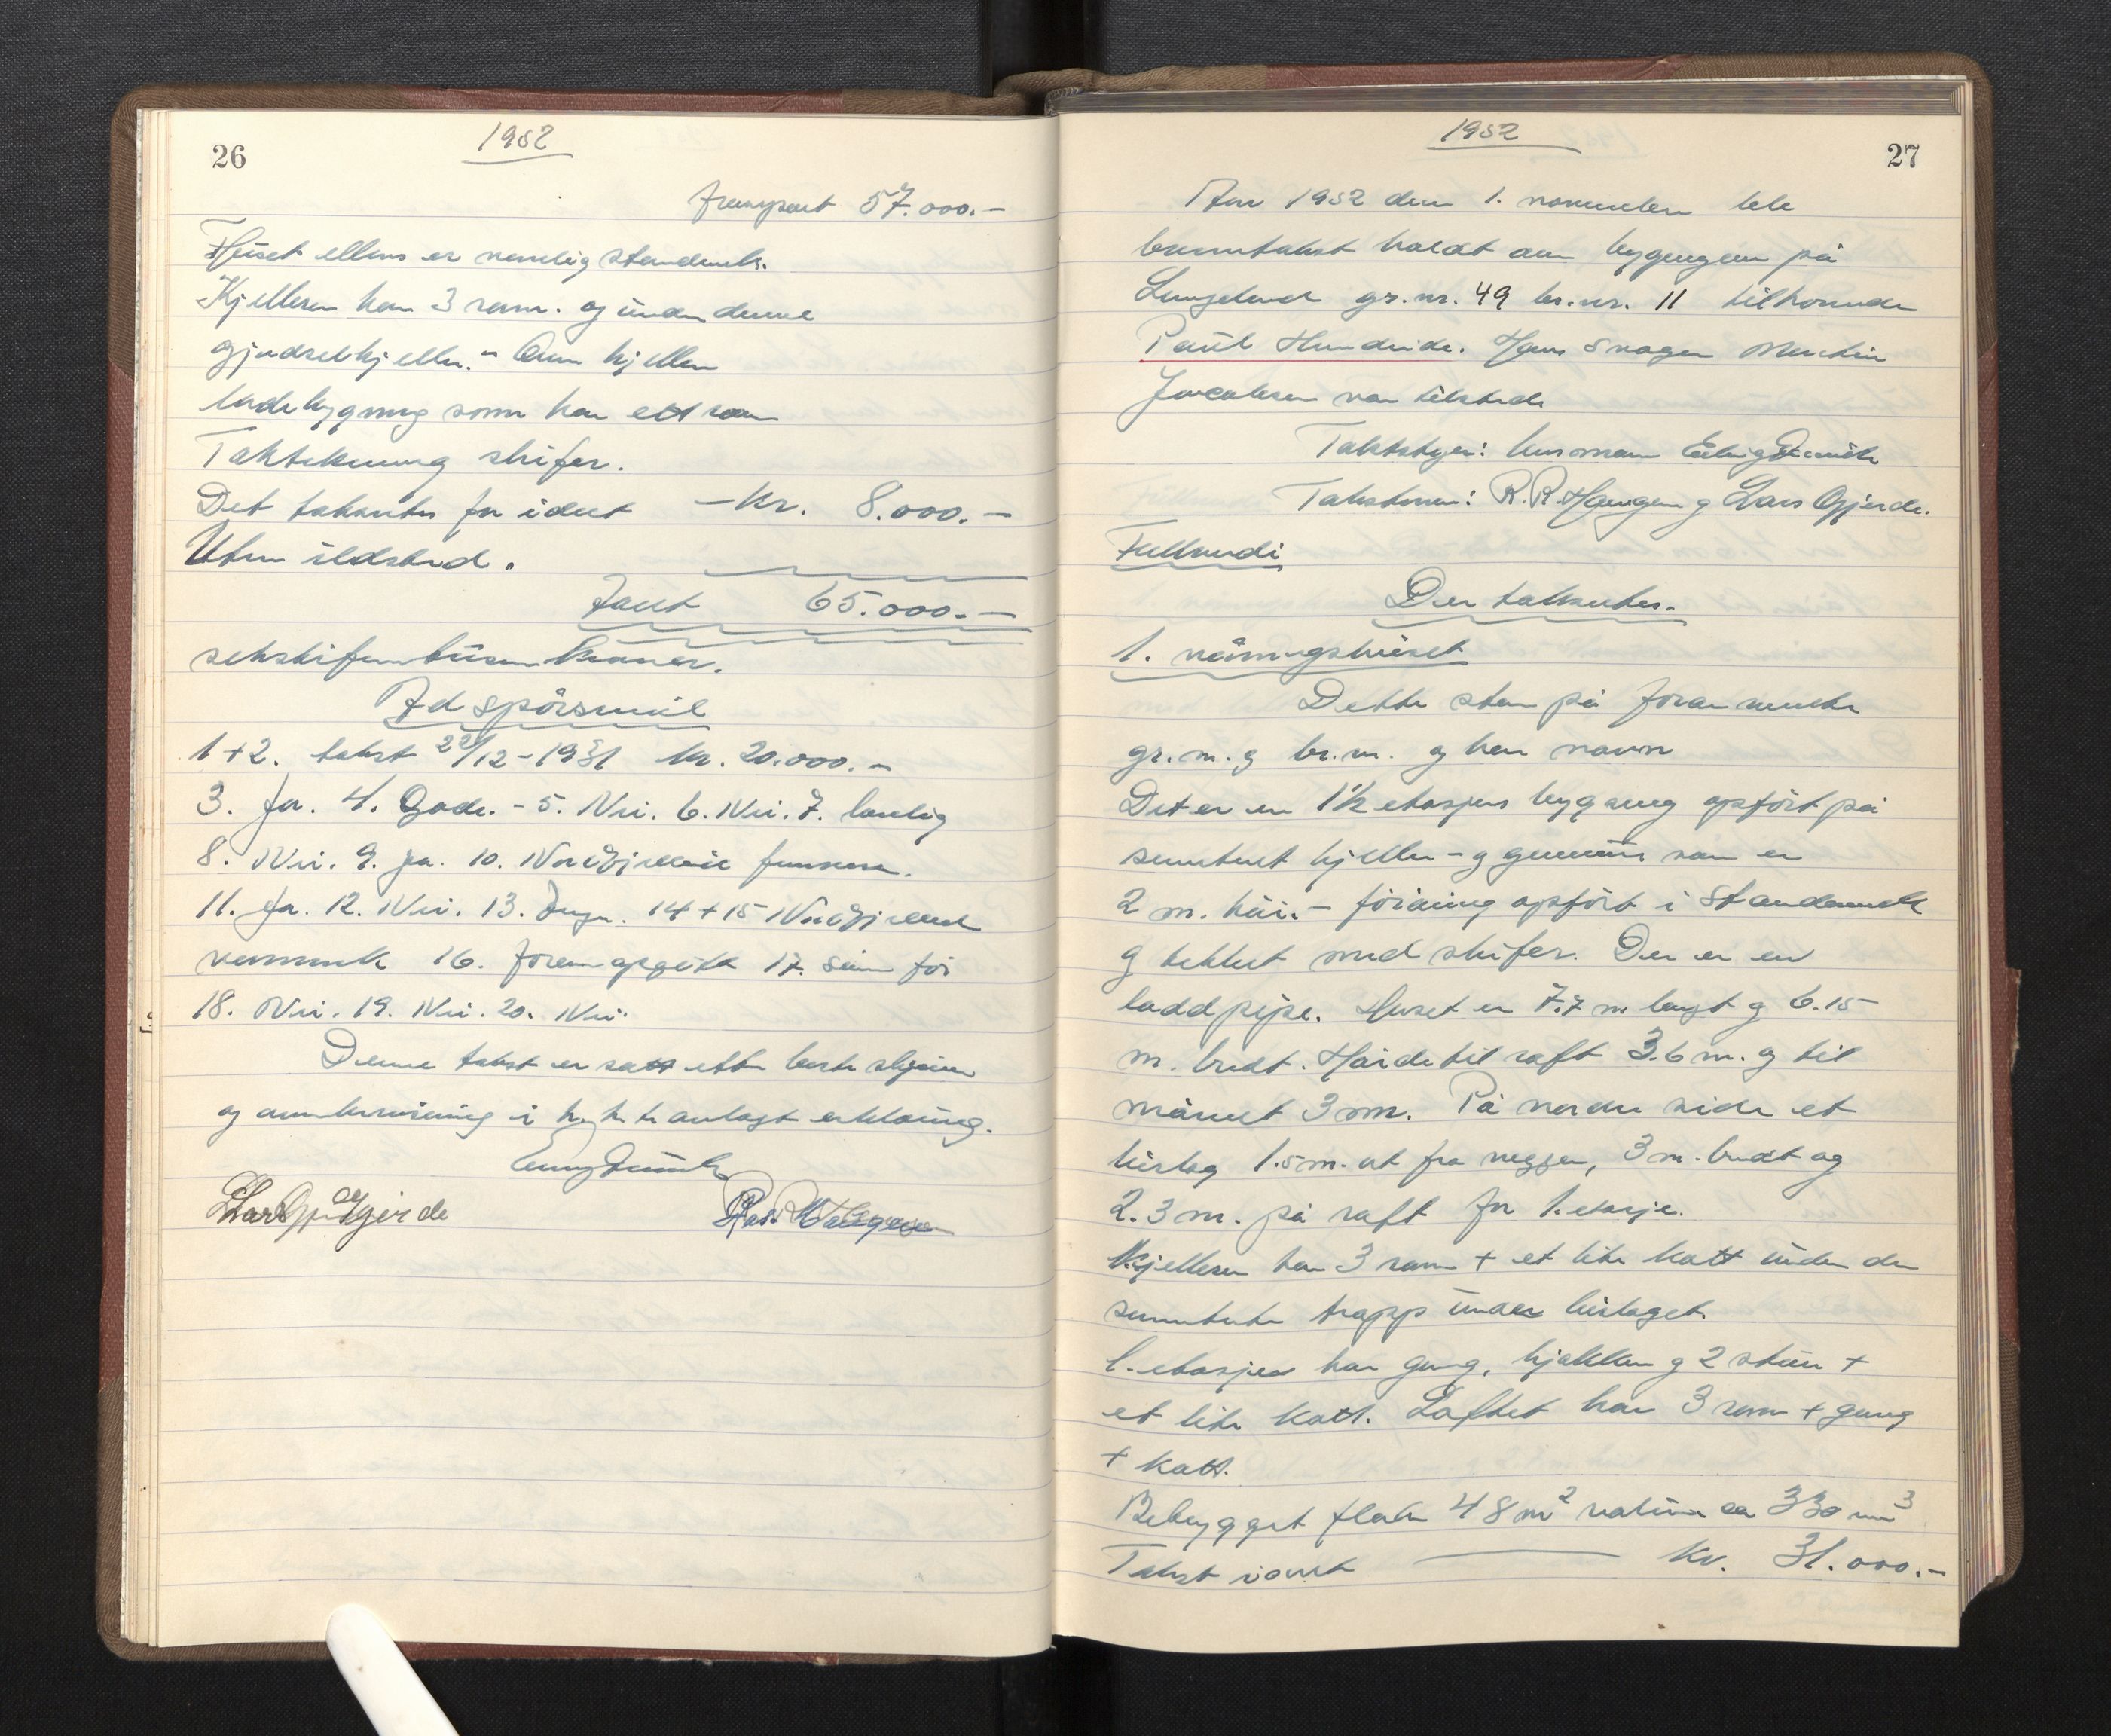 26
1952
frampart 57.000.-
Huset ellers er vanlig standverk.
Kjelleren har 3 rom. og under denne
gjødselkjeller. - Over kjeller
ladebygning som har ett rom
Taktekning skifer.
Det takseres for idert - Kr. 8.000.-
Uten ildsted.
Talt 65.000.-
sekstifemtusen kroner.
Ad spörsmål
1+2. takst 22/12-1931 kr. 20.000.-
3. Ja. 4. Gode. - 5. Nei. 6. Nei. 7. lovlig
8. Nei. 9. Ja. 10.
11. Ja. 12. Nei. 13. Ingen. 14+15
16. foran opgitt 17. som för
18. Nei. 19. Nei. 20. Nei.
Denne takst er satt efter beste skjönn
og overbevisning i h. h. t. avlagt erklæring.
Lars Gjerde
R. R. Haugen
1952
27
Aar 1952 den 1. november ble
branntakst holdt over bygningen på
Langeland gr.nr. 49 br.nr. 11 tilhörende
Paul Hundeide. Hans svoger Martin
Jacobsen var tilstede
Takstmenn: R. R. Haugen og Lars Gjerde.
Der takseres.
1. våningshuset
Dette står på foran nevnte
gr.nr. og br.nr. og har navn
Det er en 1½ etasjes bygning opfört på
sementert kjeller - og grunnmur som er
2 m. höi. - föröving opfört i Standverk
og tekket med skifer. Der er en
ladd pipe. Huset er 7.7 m langt og 6.15
m. bredt. Höide til raft 3.6 m. og til
mönnet 3 m. På nordre side et
bislag 1.5 m. ut fra veggen, 3 m. bredt og
2.3 m. på raft for 1. etasje.
Kjelleren har 3 rom + et lite kott under den
sementerte trapp under bislaget.
1. etasjen har gang, kjökken og 2 stuer +
et lite kott. Loftet har 3 rom + gang
+ kott.
Bebygget flate 48 m² volum ca 330 m³
Takst idert - Kr. 31.000.-